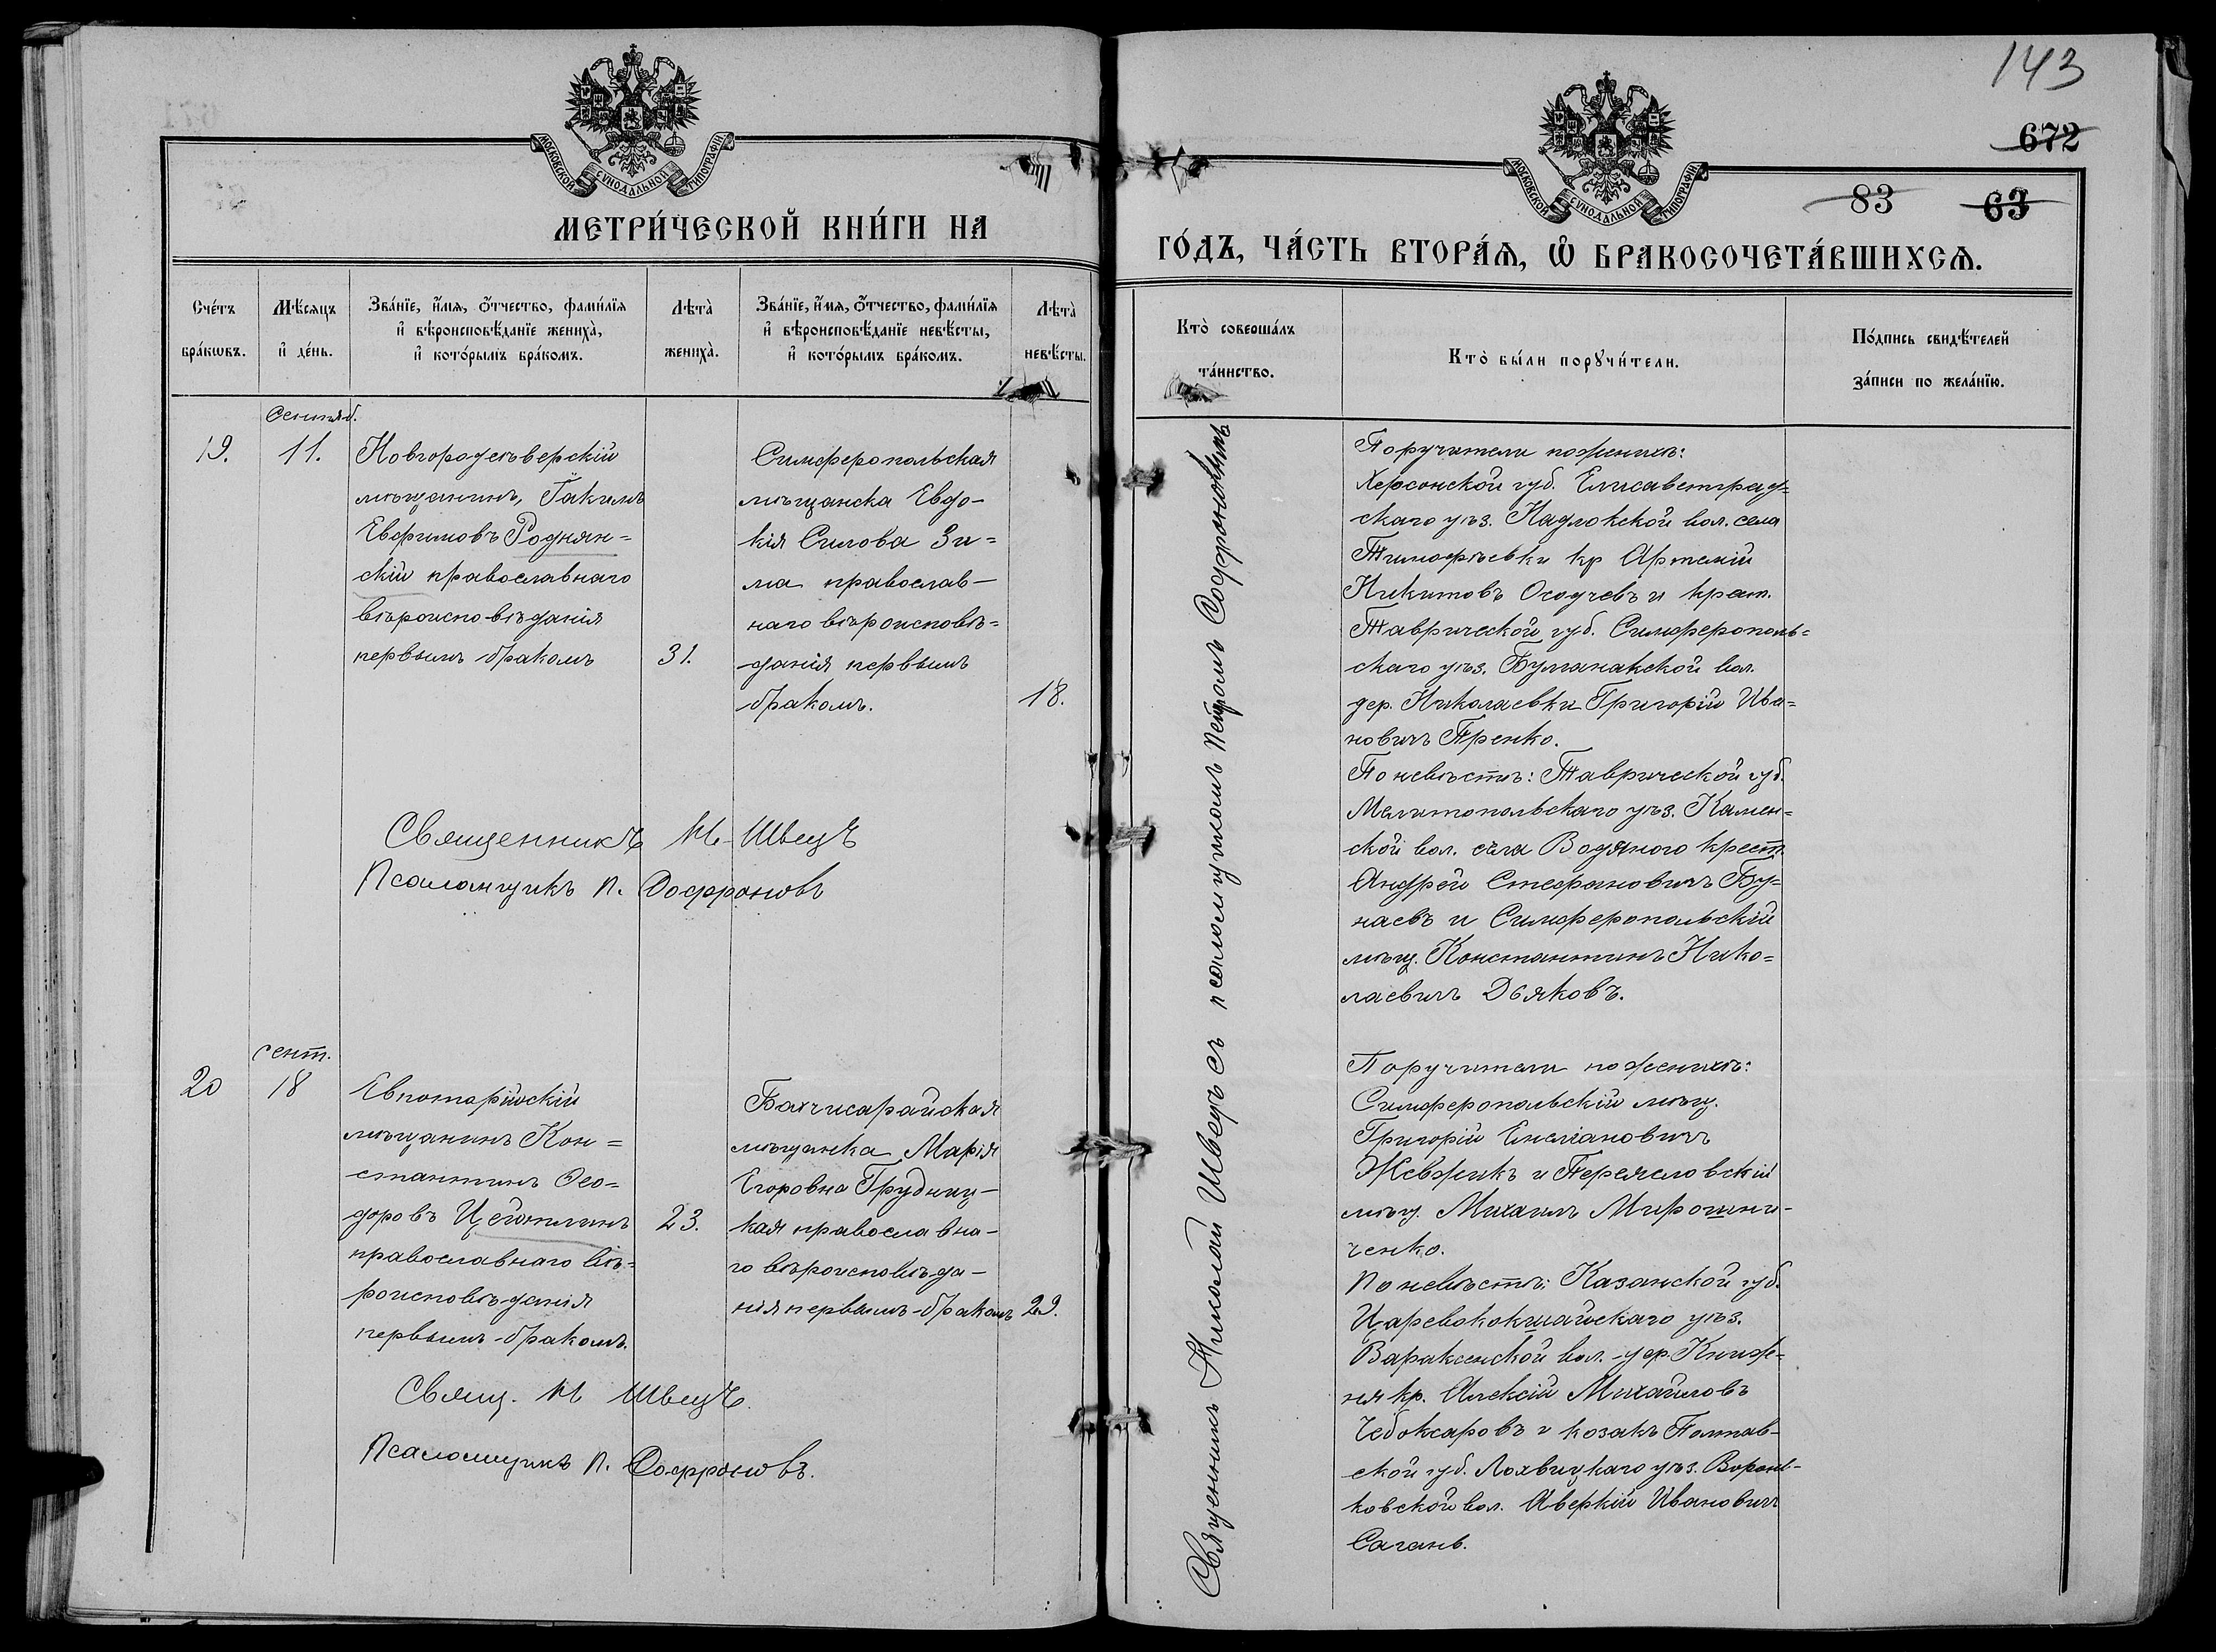 143
672
83 63
МОСКОВСКОЙ СѴНОДАЛЬНОЙ ТИПОГРАФІИ
МОСКОВСКОЙ СѴНОДАЛЬНОЙ ТИПОГРАФІИ
МЕТРИ́ЧЕСКОЙ КНИ́ГИ НА
ГО́ДЪ, ЧА́СТЬ ВТОРА́Ѧ, Ѽ БРАКОСОЧЕТА́ВШИХСѦ.
Сче́тъ
бра́кѡвъ.
Мѣ́сяцъ
и҆ де́нь.
Зва́нїе, и҆́мѧ, ѻ҆́тчество, фамѝлїѧ
и҆ вѣроисповѣ́данїе жениха̀,
и҆ кото́рымъ бра́комъ.
Лѣта̀
жениха̀.
Зва́нїе, и҆́мѧ, ѻ҆́тчество, фамѝлїѧ
и҆ вѣроисповѣ́данїе невѣ́сты,
и҆ кото́рымъ бра́комъ.
Лѣта̀
невѣ́сты.
Кто̀ соверша́лъ
та́инство.
Кто̀ бы́ли порꙋчи́тели.
По́дпись свидѣ́телей
за́писи по жела́нїю.
19.
Сентяб.
11.
Новгородсѣверскій
мѣщанинъ, Іакимъ
Евфимовъ Роднян=
скій православнаго
вѣроисповѣданія
первымъ бракомъ
31.
Симферопольская
мѣщанска Евдо-
кія Силова Зи=
ма православ-
наго вѣроисповѣ=
данія первымъ
бракомъ.
18.
Священникъ Н. Швецъ
Псаломщикъ П. Софроновъ
Священникъ Николай Швецъ съ псаломщикомъ Петромъ Софроновымъ
Поручители по женихѣ:
Херсонской губ. Елисаветград=
скаго уѣз. Надлокской вол. села
Тимофѣевки кр Артемій
Никитовъ Осадчевъ и крест.
Таврической губ. Симферополь=
скаго уѣз. Булганакской вол.
дер. Николаевки Григорій Ива=
новичъ Тренко.
По невѣстѣ: Таврической губ.
Мелитопольскаго уѣз. Камен=
ской вол. села Водяного крест.
Андрей Стефановичъ Бу=
наевъ и Симферопольскій
мѣщ. Константинъ Нико=
лаевичъ Дьяковъ.
20
сент.
18
Евпаторійскій
мѣщанинъ Кон=
стантинъ Ѳео=
доровъ Цейтлинъ
православнаго вѣ=
роисповѣданія
первымъ бракомъ.
23.
Бахчисарайская
мѣщанка Марія
Егоровна Грудниц-
кая православна-
го вѣроисповѣда-
нія первымъ бракомъ
29.
Свящ. Н Швецъ.
Псаломщикъ П. Софроновъ.
Поручители по женихѣ:
Симферопольскій мѣщ.
Григорій Емеліановичъ
Жевжикъ и Переяславскій
мѣщ. Михаилъ Мирошни-
ченко.
По невѣстѣ: Казанской губ.
Царевококшайскаго уѣз.
Вараксинской вол. дер. Княж-
ня кр. Алексій Михайловъ
Чебоксаровъ и козакъ Полтав-
ской губ. Лохвицкаго уѣз. Воронь-
ковской вол. Аверкій Ивановичъ
Сагань.